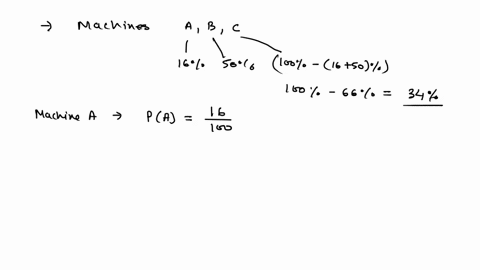 → Machines A, B, C
16% 50% (100% - (16+50)%)
100% - 66% = 34%
Machine A → P(A) = 16/100